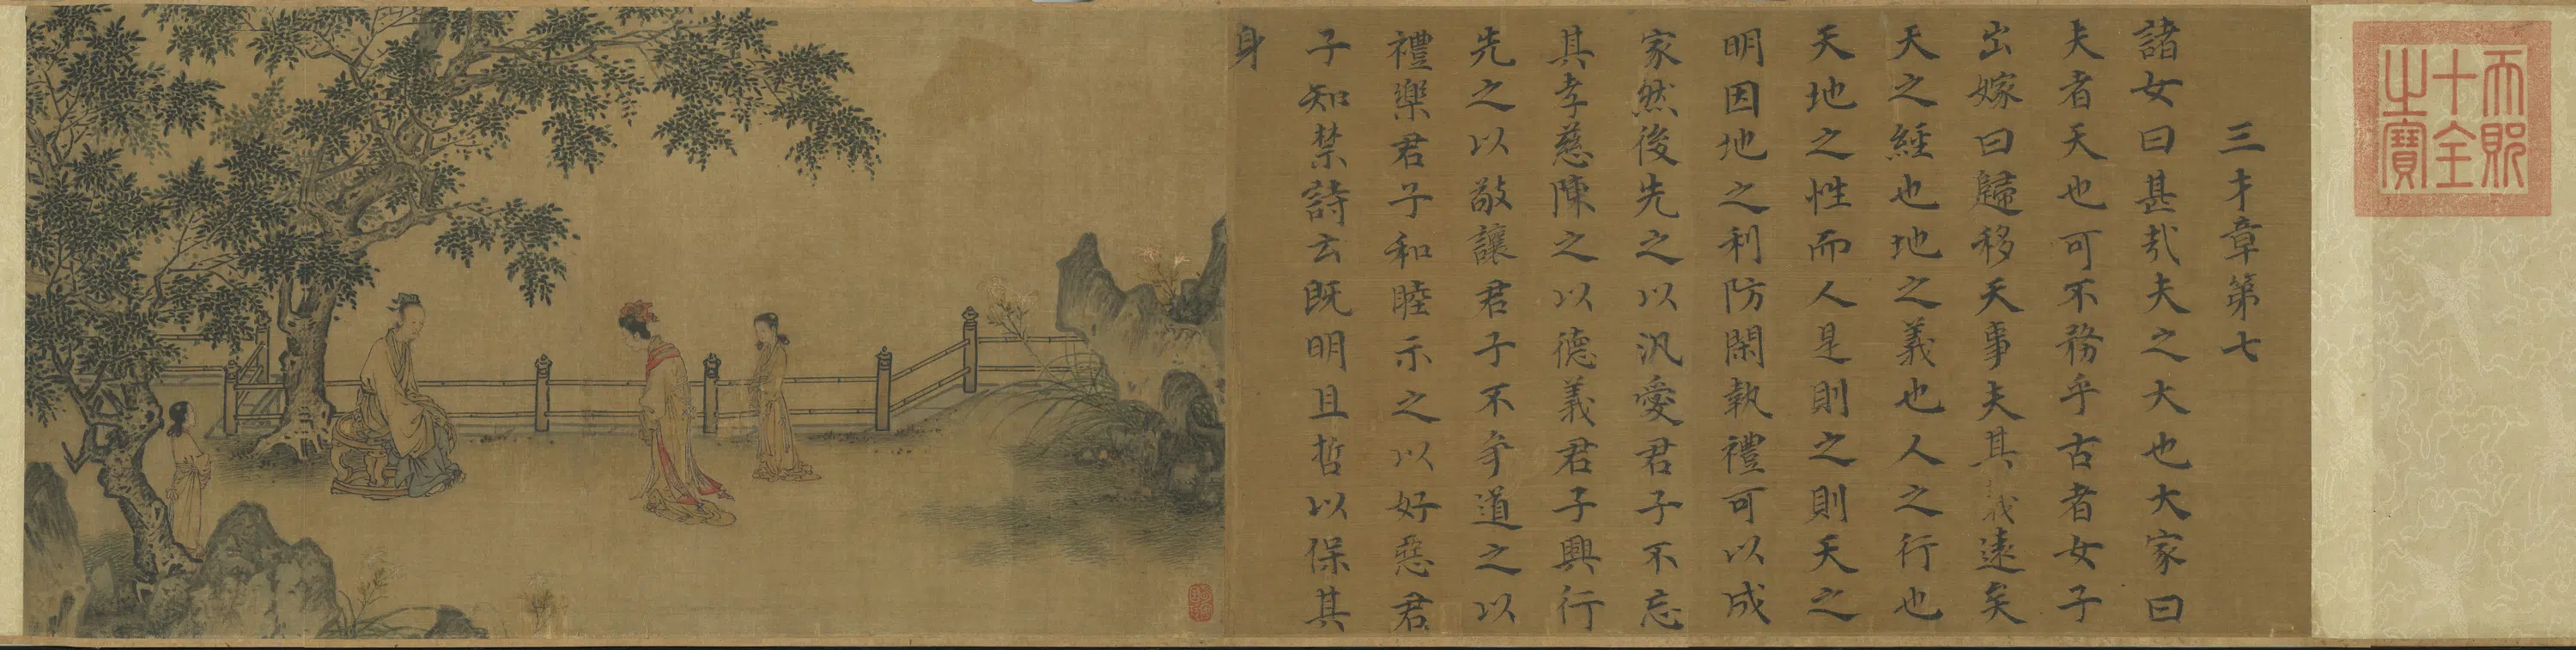 十全
之寶
三才章第七
諸女曰甚哉夫之大也大家曰
夫者天也可不務乎古者女子
出嫁曰歸移天事夫其義遠矣
天之經也地之義也人之行也
天地之性而人是則之則天之
明因地之利防閑執禮可以成
家然後先之以汎愛君子不忘
其孝慈陳之以德義君子興行
先之以敬讓君子不爭道之以
禮樂君子和睦示之以好惡君
子知禁詩云既明且哲以保其
身